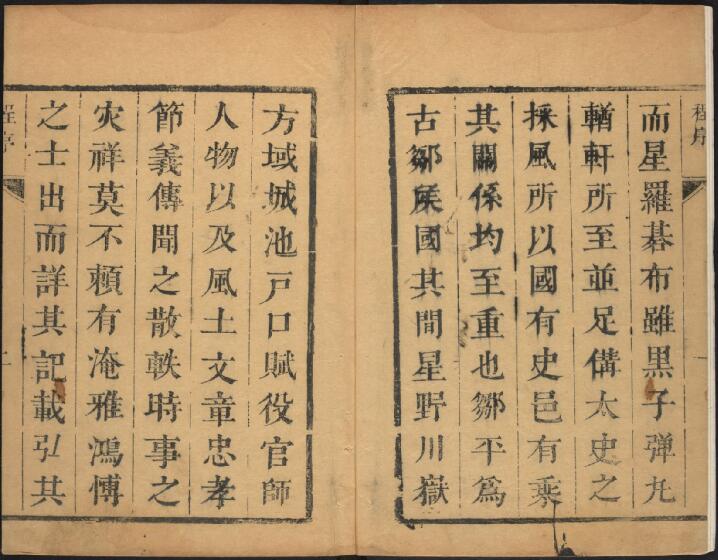 程序
而星羅碁布雖黒子弹丸
輶軒所至並足備太史之
採風所以國有史邑有乘
其關係均至重也鄒平爲
古鄒矦國其間星野川嶽
方域城池戸口賦役官師
人物以及風土文章忠孝
節義傳聞之散軼時事之
灾祥莫不頼有淹雅鴻慱
之士出而詳其記載弘其
程序